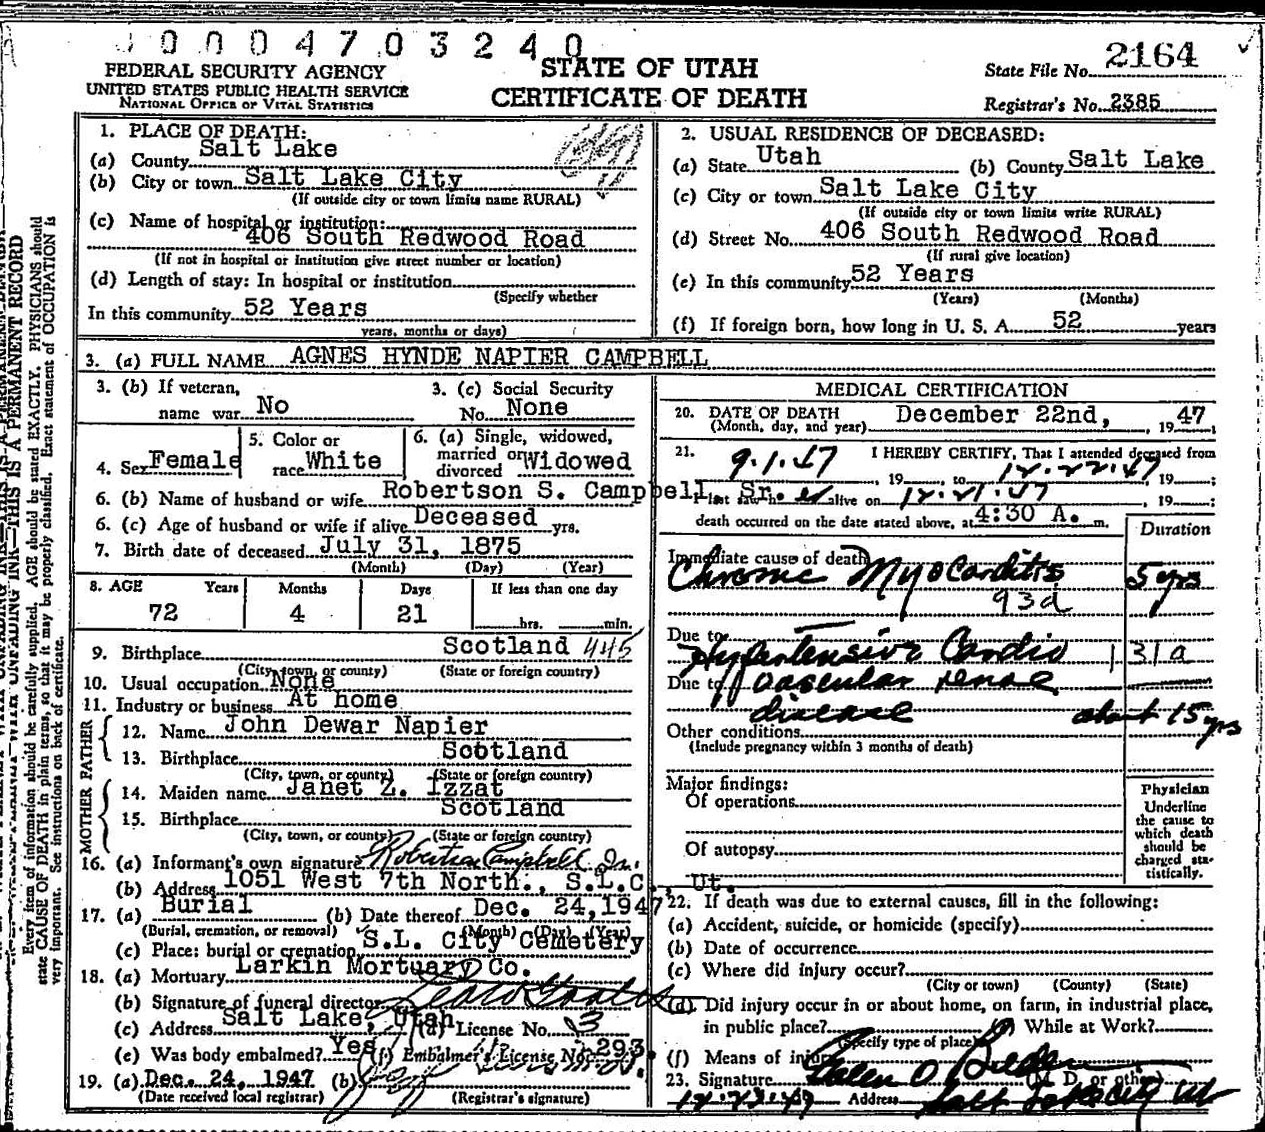 0004703240
FEDERAL SECURITY AGENCY
UNITED STATES PUBLIC HEALTH SERVICE
NATIONAL OFFICE OF VITAL STATISTICS
STATE OF UTAH
CERTIFICATE OF DEATH
State File No. 2164
Registrar's No. 2385
1. PLACE OF DEATH:
(a) County Salt Lake
(b) City or town Salt Lake City
(If outside city or town limits name RURAL)
(c) Name of hospital or institution:
406 South Redwood Road
(If not in hospital or institution give street number or location)
(d) Length of stay: In hospital or institution
(Specify whether
In this community 52 Years
years, months or days)
2. USUAL RESIDENCE OF DECEASED:
(a) State Utah (b) County Salt Lake
(c) City or town Salt Lake City
(If outside city or town limits write RURAL)
(d) Street No. 406 South Redwood Road
(If rural give location)
(e) In this community 52 Years
(Years) (Months)
(f) If foreign born, how long in U. S. A. 52 years
3. (a) FULL NAME AGNES HYNDE NAPIER CAMPBELL
3. (b) If veteran, name war No
3. (c) Social Security No. None
4. Sex Female
5. Color or race White
6. (a) Single, widowed, married or divorced Widowed
6. (b) Name of husband or wife Robertson S. Campbell, Sr.
6. (c) Age of husband or wife if alive Deceased yrs.
7. Birth date of deceased July 31, 1875
(Month) (Day) (Year)
8. AGE Years Months Days If less than one day
72 4 21 hrs. min.
9. Birthplace Scotland 445
(City, town, or county) (State or foreign country)
10. Usual occupation None
11. Industry or business At home
FATHER
12. Name John Dewar Napier
13. Birthplace Scotland
(City, town, or county) (State or foreign country)
MOTHER
14. Maiden name Janet Z. Izzat
15. Birthplace Scotland
(City, town, or county) (State or foreign country)
16. (a) Informant's own signature Robertson Campbell Jr.
(b) Address 1051 West 7th North., S.L.C., Ut.
17. (a) Burial (b) Date thereof Dec. 24, 1947
(Burial, cremation, or removal) (Month) (Day) (Year)
(c) Place: burial or cremation S.L. City Cemetery
18. (a) Mortuary Larkin Mortuary Co.
(b) Signature of funeral director
(c) Address Salt Lake, Utah (d) License No. 3
(e) Was body embalmed? Yes (f) Embalmer's License No. 293.
19. (a) Dec. 24, 1947 (b)
(Date received local registrar) (Registrar's signature)
MEDICAL CERTIFICATION
20. DATE OF DEATH December 22nd, 1947
(Month, day, and year)
21. I HEREBY CERTIFY, That I attended deceased from
9.1.47, 19 to 12.22.47, 19 ;
I last saw her alive on 12.21.47, 19 ;
death occurred on the date stated above, at 4:30 A. m.
Duration
Immediate cause of death
Chronic Myocarditis 5 yrs
93d
Due to
Hypertensive Cardio 131a
Due to vascular renal
disease about 15 yrs
Other conditions
(Include pregnancy within 3 months of death)
Major findings:
Of operations
Of autopsy
Physician
Underline
the cause to
which death
should be
charged sta-
tistically.
22. If death was due to external causes, fill in the following:
(a) Accident, suicide, or homicide (specify)
(b) Date of occurrence
(c) Where did injury occur?
(City or town) (County) (State)
(d) Did injury occur in or about home, on farm, in industrial place,
in public place? (e) While at Work?
(Specify type of place)
(f) Means of injury
23. Signature (M. D. or other)
Address Salt Lake City Ut
THIS IS A PERMANENT RECORD
Every item of information should be carefully supplied. AGE should be stated EXACTLY. PHYSICIANS should
state CAUSE OF DEATH in plain terms, so that it may be properly classified. Exact statement of OCCUPATION is
very important. See instructions on back of certificate.